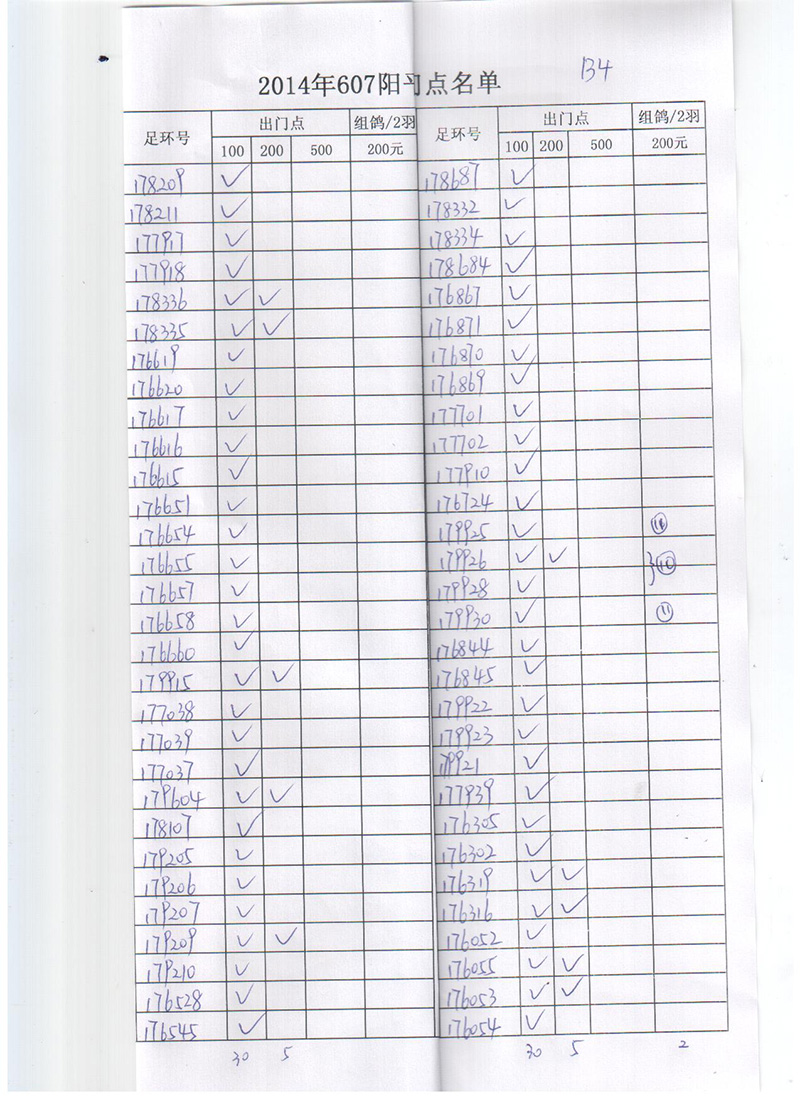 134
2014年607阳 点名单
足环号 出门点 组鸽/2羽 足环号 出门点 组鸽/2羽
100 200 500 200元 100 200 500 200元
178209 ✓ 178687 ✓
178211 ✓ 178332 ✓
177917 ✓ 178334 ✓
177918 ✓ 178684 ✓
178336 ✓ ✓ 176867 ✓
178335 ✓ ✓ 176871 ✓
176619 ✓ 176870 ✓
176620 ✓ 176869 ✓
176617 ✓ 177701 ✓
176616 ✓ 177702 ✓
176615 ✓ 177910 ✓
176651 ✓ 176724 ✓
176654 ✓ 179925 ✓
176655 ✓ 179926 ✓ ✓ ⑩
176657 ✓ 179928 ✓
176658 ✓ 179930 ✓ ⑪
176660 ✓ 176844 ✓
179915 ✓ ✓ 176845 ✓
177038 ✓ 179922 ✓
177039 ✓ 179923 ✓
177037 ✓ 179921 ✓
179604 ✓ ✓ 177939 ✓
178107 ✓ 176305 ✓
179205 ✓ 176302 ✓
179206 ✓ 176319 ✓ ✓
179207 ✓ 176316 ✓ ✓
179209 ✓ ✓ 176052 ✓
179210 ✓ 176055 ✓ ✓
176528 ✓ 176053 ✓ ✓
176545 ✓ 176054 ✓
30 5 30 5 2